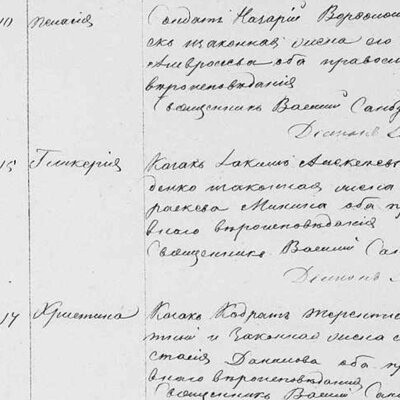 10 Пелагія
Солдатъ Назарій
законная жена его
Амвросіева оба правосл
вѣроисповѣданія
Священникъ Василій
Діаконъ
15 Гликерія
Козакъ Іакимъ Алексѣев
денко законная жена
раскева Минина оба пр
внаго вѣроисповѣданія
Священникъ Василій
Діаконъ
14 Христина
Козакъ Кодратъ Терентіе
тній и Законная жена
стасія Данилова оба пр
внаго вѣроисповѣданія
Священникъ Василій